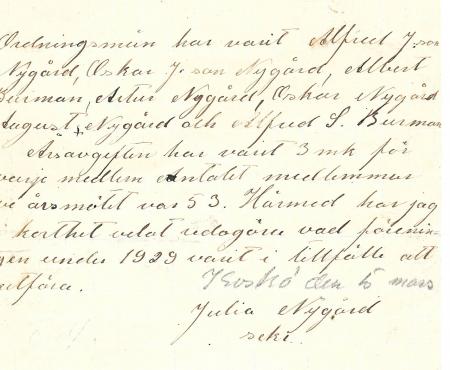 Ordningsmän har varit Alfred J.son
Nygård, Oskar J.son Nygård, Albert
Burman, Artur Nygård, Oskar Nygård
August Nygård och Alfred S. Burman
Årsavgiften har varit 3 mk för
varje medlem antalet medlemmar
vi årsmötet var 53. Härmed har jag
i korthet velat redogöra vad förenin-
gen under 1929 varit i tillfälle att
utföra.
den 15 mars
Julia Nygård
sekr.